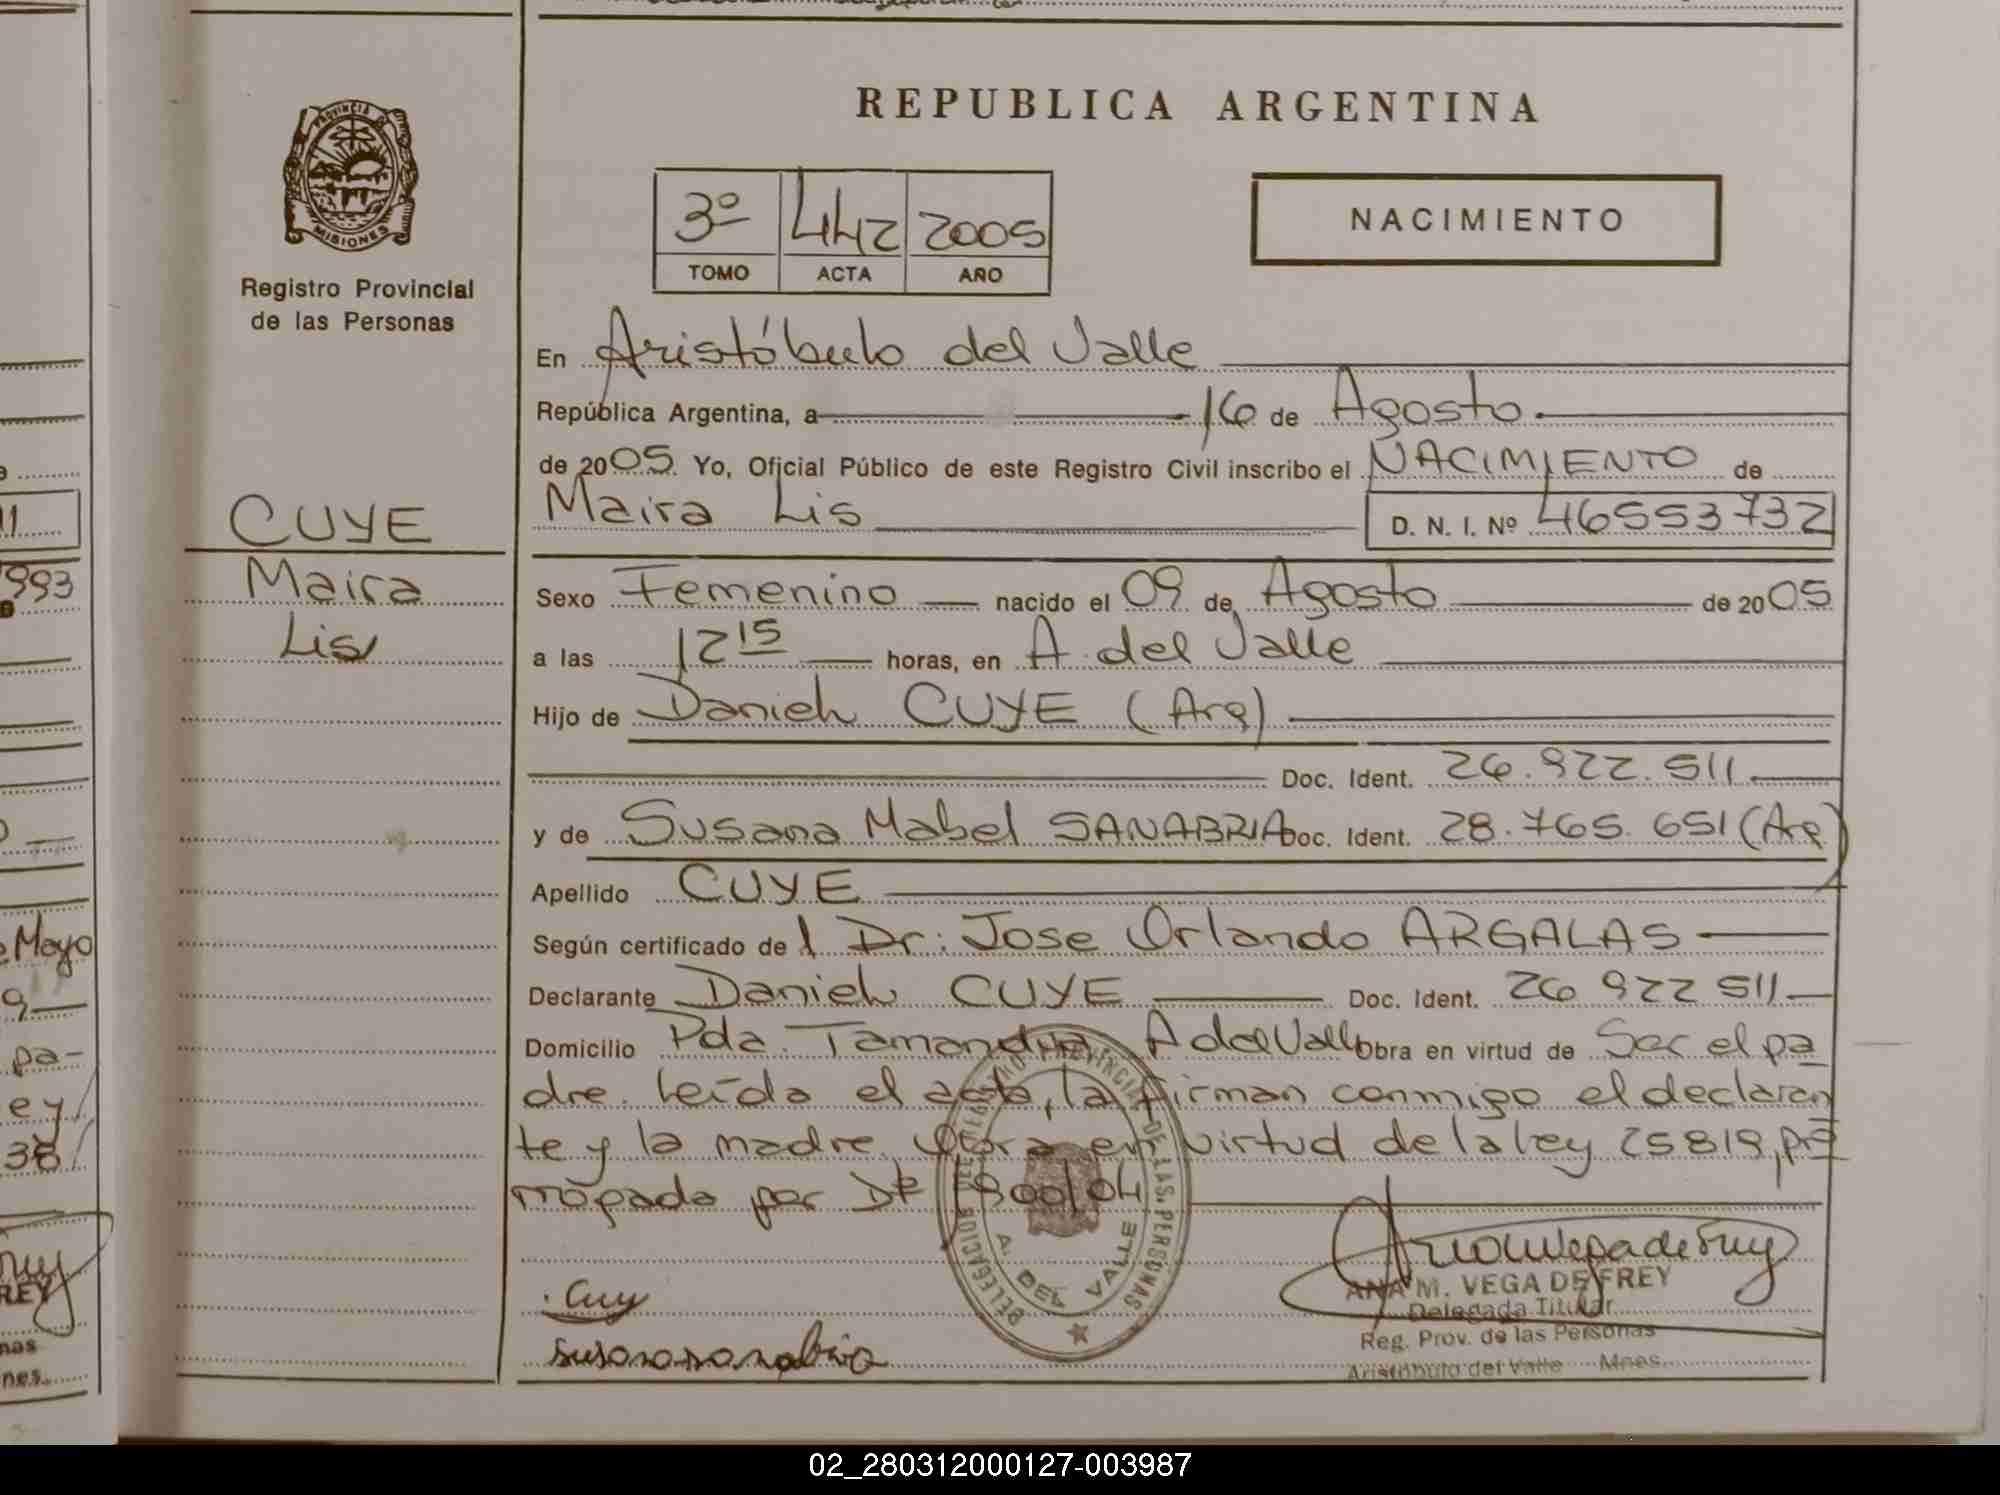 REPUBLICA ARGENTINA
PROVINCIA DE
MISIONES
Registro Provincial
de las Personas
3º 442 2005
TOMO ACTA AÑO
NACIMIENTO
En Aristóbulo del Valle
República Argentina, a 16 de Agosto
de 2005. Yo, Oficial Público de este Registro Civil inscribo el NACIMIENTO de
CUYE
Maira
Lis
Maira Lis D. N. I. Nº 46553732
Sexo Femenino nacido el 09 de Agosto de 2005
a las 12 15 horas, en A. del Valle
Hijo de Daniel CUYE (Arg)
Doc. Ident. 26.922.511
y de Susana Mabel SANABRIA Doc. Ident. 28.765.651 (Arg)
Apellido CUYE
Según certificado de l Dr: Jose Orlando ARGALAS
Declarante Daniel CUYE Doc. Ident. 26 922 511
Domicilio Pda. Tamandua A del Valle obra en virtud de Ser el pa
dre. Leída el acta, la firman conmigo el declaran
te y la madre. Obra en virtud de la ley 25819, pro
mogada por Dto 1800/04
DELEGACION REGISTRO PROVINCIAL DE LAS PERSONAS
A. DEL VALLE
Cuy
susana sanabria
ANA M. VEGA DE FREY
Delegada Titular
Reg. Prov. de las Personas
Aristóbulo del Valle Mnes.
993
Mayo
9
pa-
ey
38
REY
nas
nes.
02_280312000127-003987